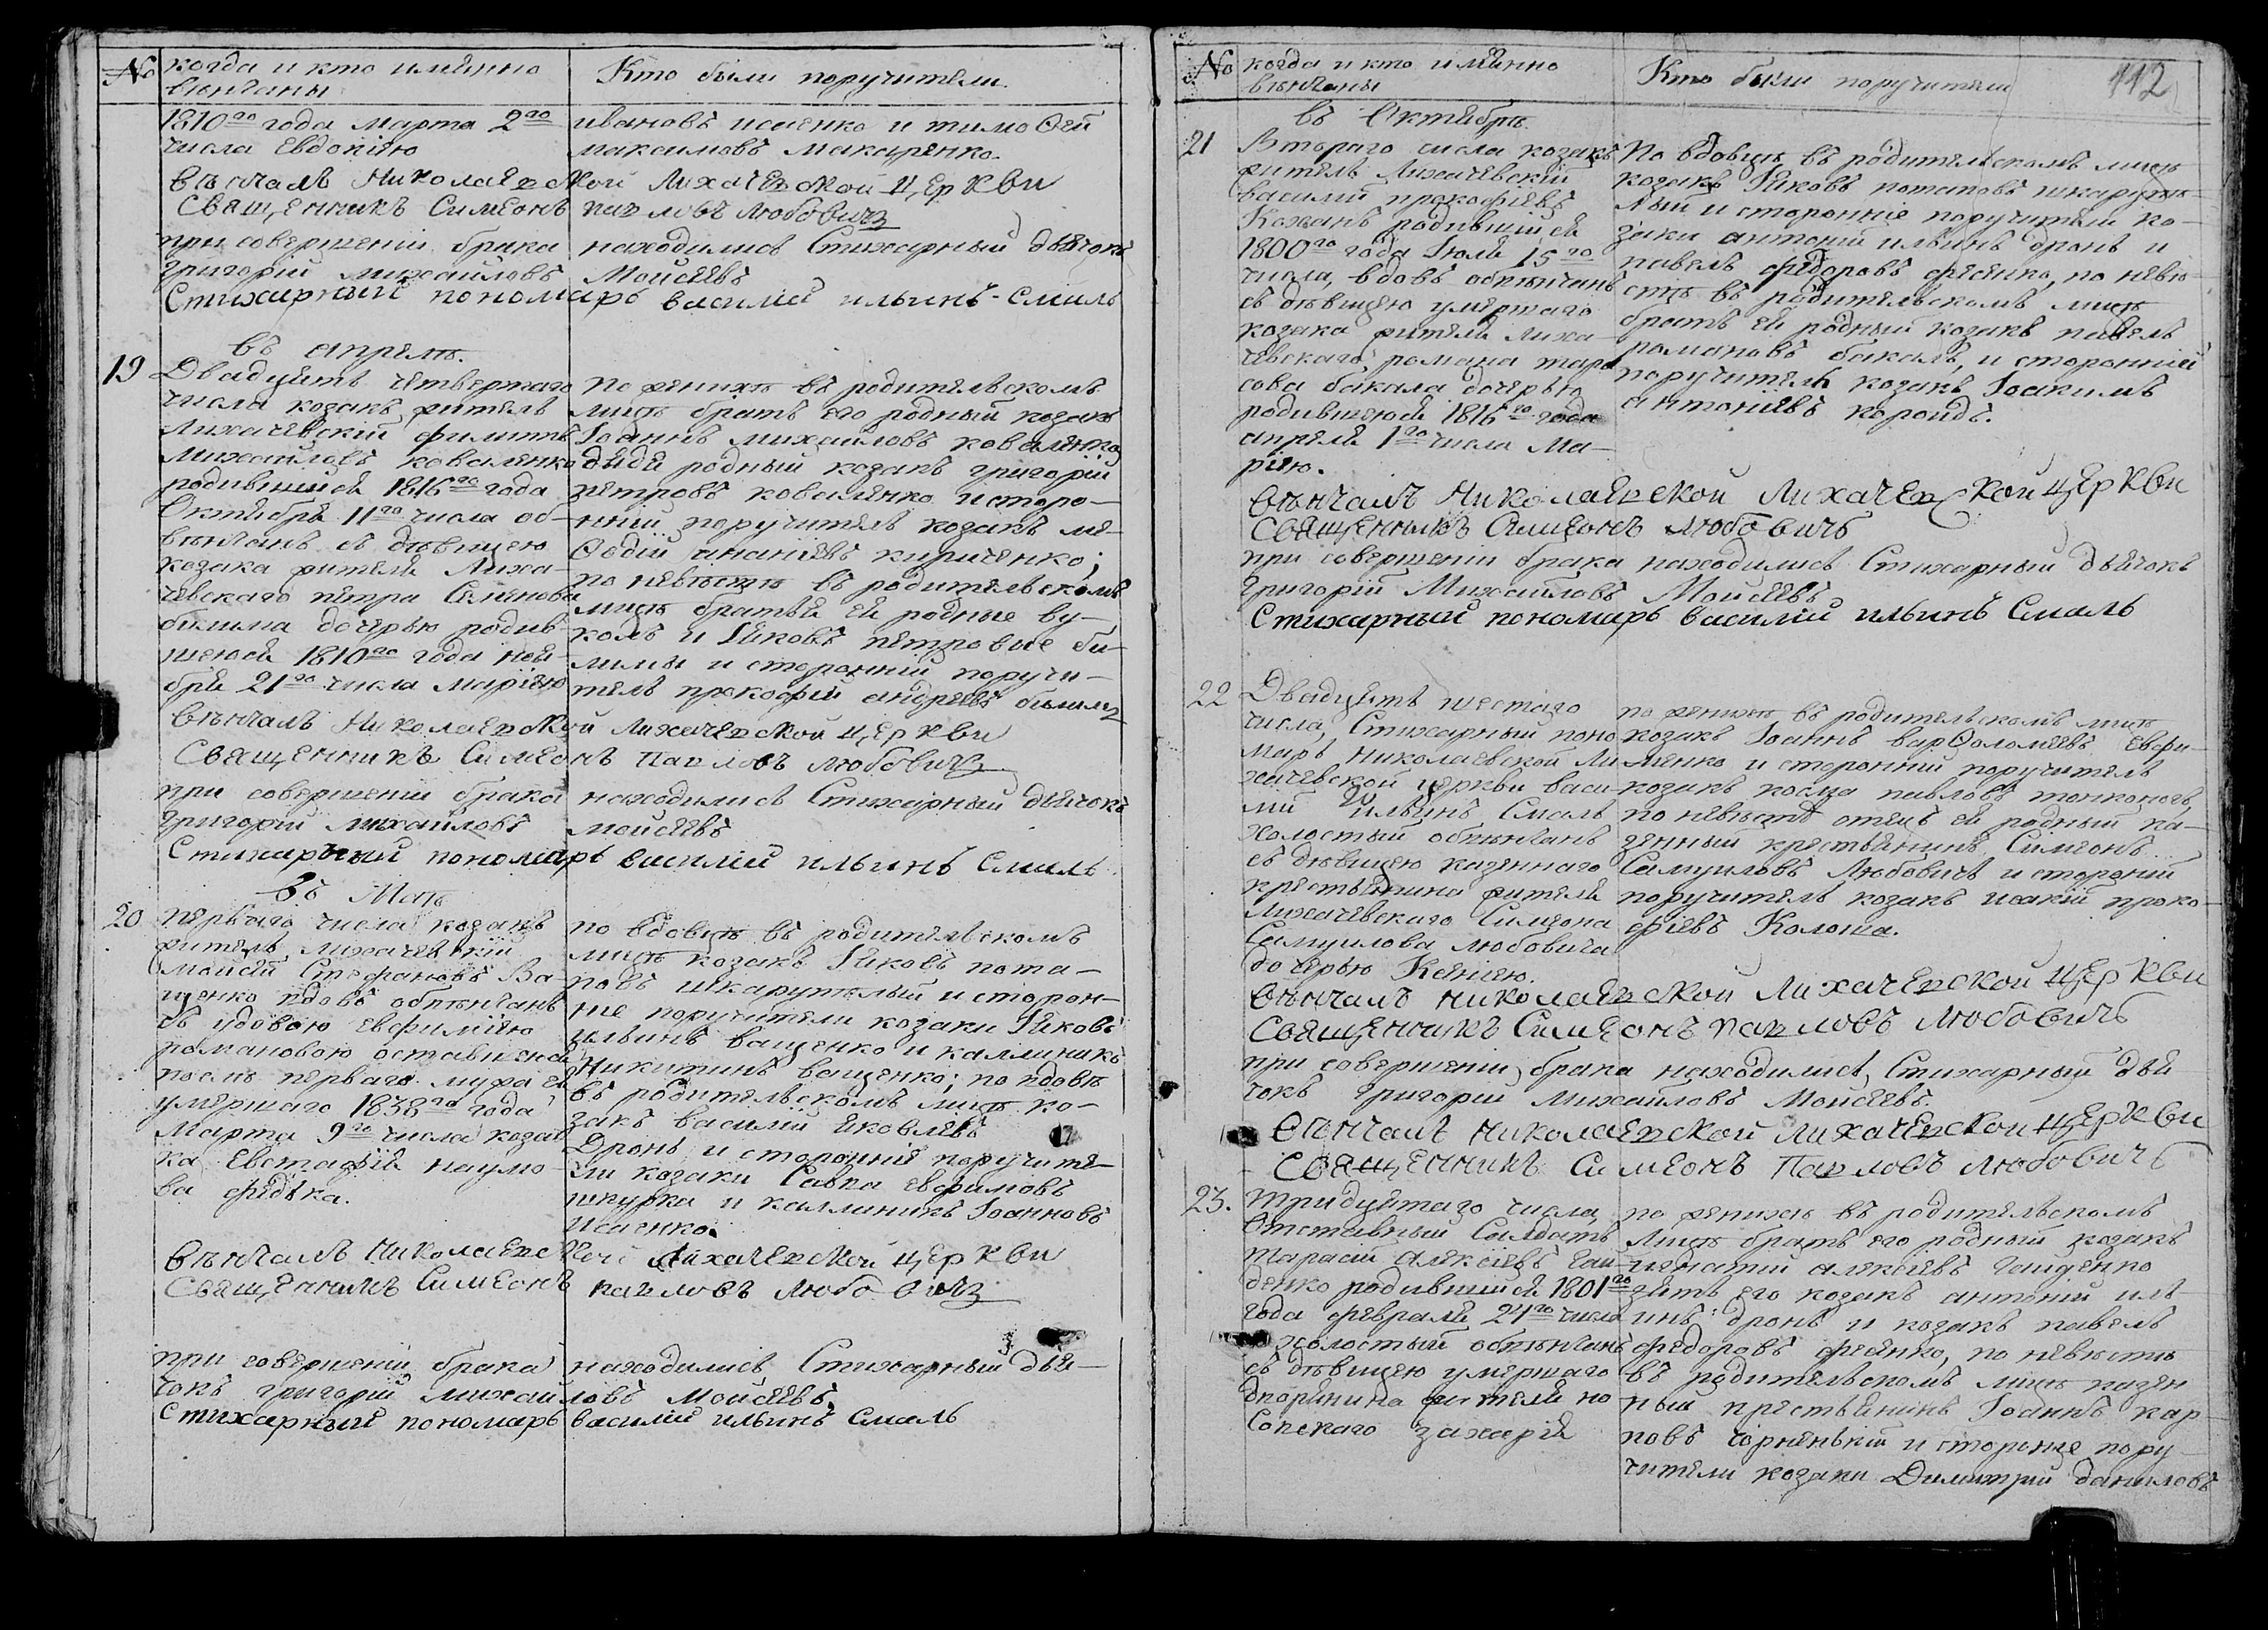 № когда и кто имянно
венчаны
Кто были поручители
1810го года марта 2го
числа Евдокію
ивановъ исаенко и тимоѳей
максимовъ макаренко.
венчалъ Николаевской Лихачевской церкви
Священникъ Симеонъ павловъ любовичъ
при совершеніи брака находились Стихарный дьячокъ
григорій михайловъ Моисѣевъ
Стихарный пономарь василій ильинъ Смаль
въ апрелѣ.
19
Двадцять четвертаго
числа козакъ житель
Лихачевскій филиппъ
Михайловъ коваленко
родившійся 1816го года
Октября 11го числа об-
венчанъ съ дѣвицею
козака жителя Лиха-
чевскаго петра Семенова
билима дочерью родив-
шеюся 1810го года ноя-
бря 21го числа Маріею
по женихѣ въ родительскомъ
лицѣ братъ его родный козакъ
Іоаннъ михайловъ коваленко
дядя родный козакъ григорій
петровъ коваленко и сторо-
нній поручитель козакъ ме-
ѳодій ананіевъ кириченко;
по невѣстѣ въ родительскомъ
лицѣ братья ея родные ву-
колъ и Яковъ петровые би-
лимы и сторонній поручи-
тель прокофій андреевъ билимъ
венчалъ Николаевской Лихачевской церкви
Священникъ Симеонъ Павловъ любовичъ
при совершеніи брака находились Стихарный дьячокъ
григорій михайловъ моисѣевъ
Стихарный пономарь василій ильинъ Смаль
въ Маѣ
20
перваго числа козакъ
житель Лихачевскій
моисей Стефановъ Ва-
щенко вдовъ обвенчанъ
съ удовою евфиміею
романовою оставшеюся
послѣ перваго мужа ея
умершаго 1838го года
Марта 9го числа козака
Евстафія наумо-
ва федька.
по вдовцѣ въ родительскомъ
лицѣ козакъ Яковъ пота-
повъ шкарупѣлый и сторон-
ніе поручители козаки Яковъ
ильинъ ващенко и каллиникъ
Никитинъ ващенко; по вдовѣ
въ родительскомъ лицѣ ко-
закъ василій яковлевъ
Дронь и сторонніе поручите-
ли козаки Савва евфимовъ
шкурка и каллиникъ Іоанновъ
исаенко.
венчалъ Николаевской Лихачевской церкви
Священникъ Симеонъ павловъ любовичъ
при совершеніи брака находились Стихарный дья-
чокъ григорій михайловъ Моисѣевъ,
стихарный пономарь василій ильинъ Смаль
№ когда и кто имянно
венчаны
Кто были поручители
112
въ Октябрѣ.
21
Втораго числа козакъ
житель Лихачевскій
василій прокофіевъ
Кожанъ родившійся
1800го года Іюля 15го
числа, вдовъ обвенчанъ
съ дѣвицею умершаго
козака жителя Лиха-
чевскаго романа тара
сова бакала дочерью
родившеюся 1816го года
апреля 1го числа Ма-
ріею.
По вдовцѣ въ родительскомъ лицѣ
козакъ Яковъ потаповъ шкарупѣ-
лый и сторонніе поручители ко-
заки антоній ильинъ дронь и
павелъ федоровъ фесенко, по невѣ-
стѣ въ родительскомъ лицѣ
братъ ея родный козакъ павелъ
романовъ бакалъ, и сторонній
поручитель козакъ Іоакимъ
антоніевъ короидъ.
венчалъ Николаевской Лихачевской церкви
Священникъ Симеонъ любовичъ
при совершеніи брака находились Стихарный дьячокъ
григорій Михайловъ Моисѣевъ
Стихарный пономарь василій ильинъ Смаль
22
Двадцять шестаго
числа, Стихарный поно
марь Николаевской Ли
хачевской церкви васи-
лій Ильинъ Смаль
холостый обвенчанъ
съ дѣвицею казеннаго
крестьянина жителя
Лихачевскаго Симеона
Самуилова любовича
дочерью Ксеніею.
по женихѣ въ родительскомъ лицѣ
козакъ Іоаннъ варѳоломеевъ Евфи-
менко и сторонній поручитель
козакъ косма павловъ тонконогъ,
по невѣстѣ отецъ ея родный ка-
зенный крестьянинъ Симеонъ
Самуиловъ Любовичъ и сторонній
поручитель козакъ исакій проко-
фіевъ Колоша.
венчалъ николаевской Лихачевской церкви
священникъ Симеонъ павловъ любовичъ
при совершеніи брака находились, Стихарный дья
чокъ григорій Михайловъ Моисѣевъ.
венчалъ николаевской лихачевской церкви
священникъ Симеонъ Павловъ любовичъ
23.
тридцятаго числа,
Отставный Салдатъ
тарасій алексіевъ гай-
денко родившійся 1801го
года февраля 24го числа
холостый обвенчанъ
съ дѣвицею умершаго
дворянина жителя но
Сопскаго захарія
по женихѣ въ родительскомъ
лицѣ братъ его родный козакъ
игнатій алексіевъ гайденко
зять его козакъ антоній иль-
инъ дронь и козакъ павелъ
федоровъ фесенко, по невѣстѣ
въ родительскомъ лицѣ казен
ный крестьянинъ Іоаннъ кар-
повъ чорненькій и стороніе пору-
чители козаки Димитрій даниловъ